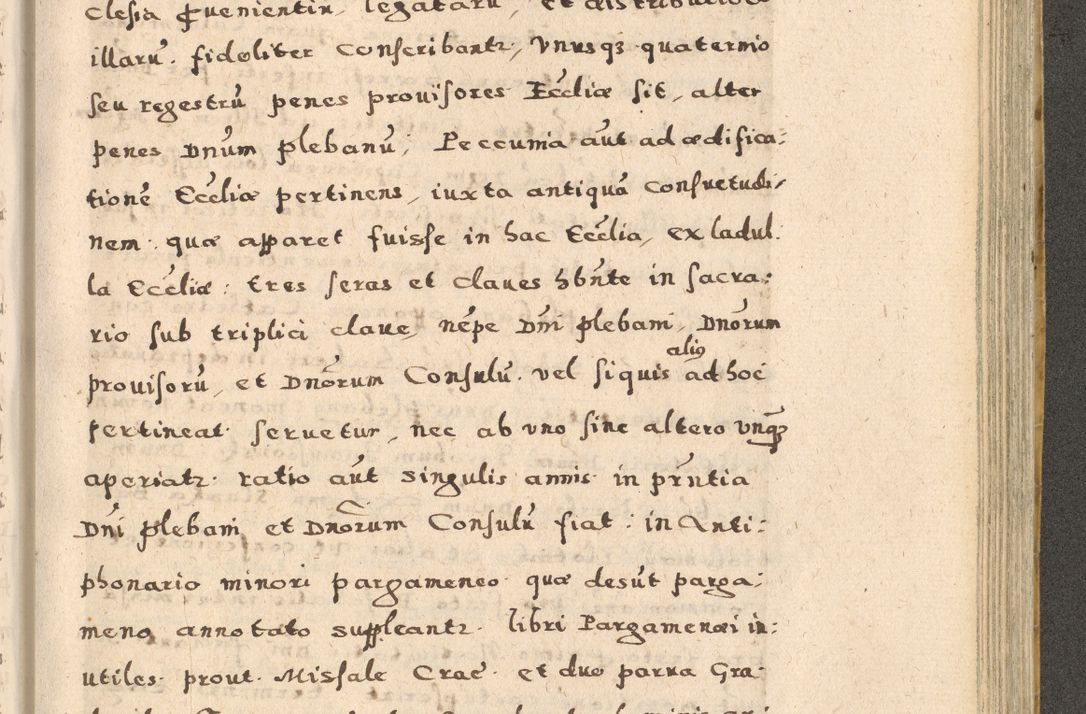 clesia ꝓuenientiũ, legatarũ, et distributio
illarũ. fideliter conscribantr, Vnusqꝫ quaternio
seu regestrũ penes prouisores Ecc̃liæ sit, alter
penes Dnũm plebanũ; Peccunia aũt ad ædifica:
tionẽ Ecc̃liæ pertinens, iuxta antiquã consuetudi,
nem. quæ apparet fuisse in hac Ecc̃lia, ex ladul.
la Ecc̃liæ: tres seras et claues hbñte in sacra:
rio sub triplici claue, nẽpe Dñi plebani, Dnõrum
prouisorũ, et Dnõrum Consulũ. vel si quis alius ad hoc
pertineat seruetur, nec ab vno sine altero vnquã
aperiatr. ratio aũt singulis annis in prñtia
Dñi plebani et Dnõrum Consulũ fiat: in Anti:
phonario minori pargameneo quæ desũt parga:
meno annotato suppleantr. libri Pargamenei in:
utiles. prout. Missale Crac̃. et duo parua Gra: